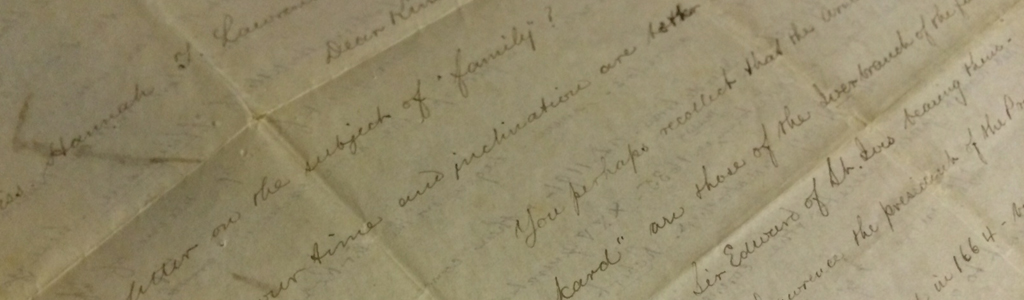 Hannah J. Lawren
Dear Kin
letter on the subject of "family"?
our time and inclination are both
You perhaps recollect that the
kard" are those of the branch of the
Sir Edward of St. Ives bearing theirs.
the president of the
in 1664 -